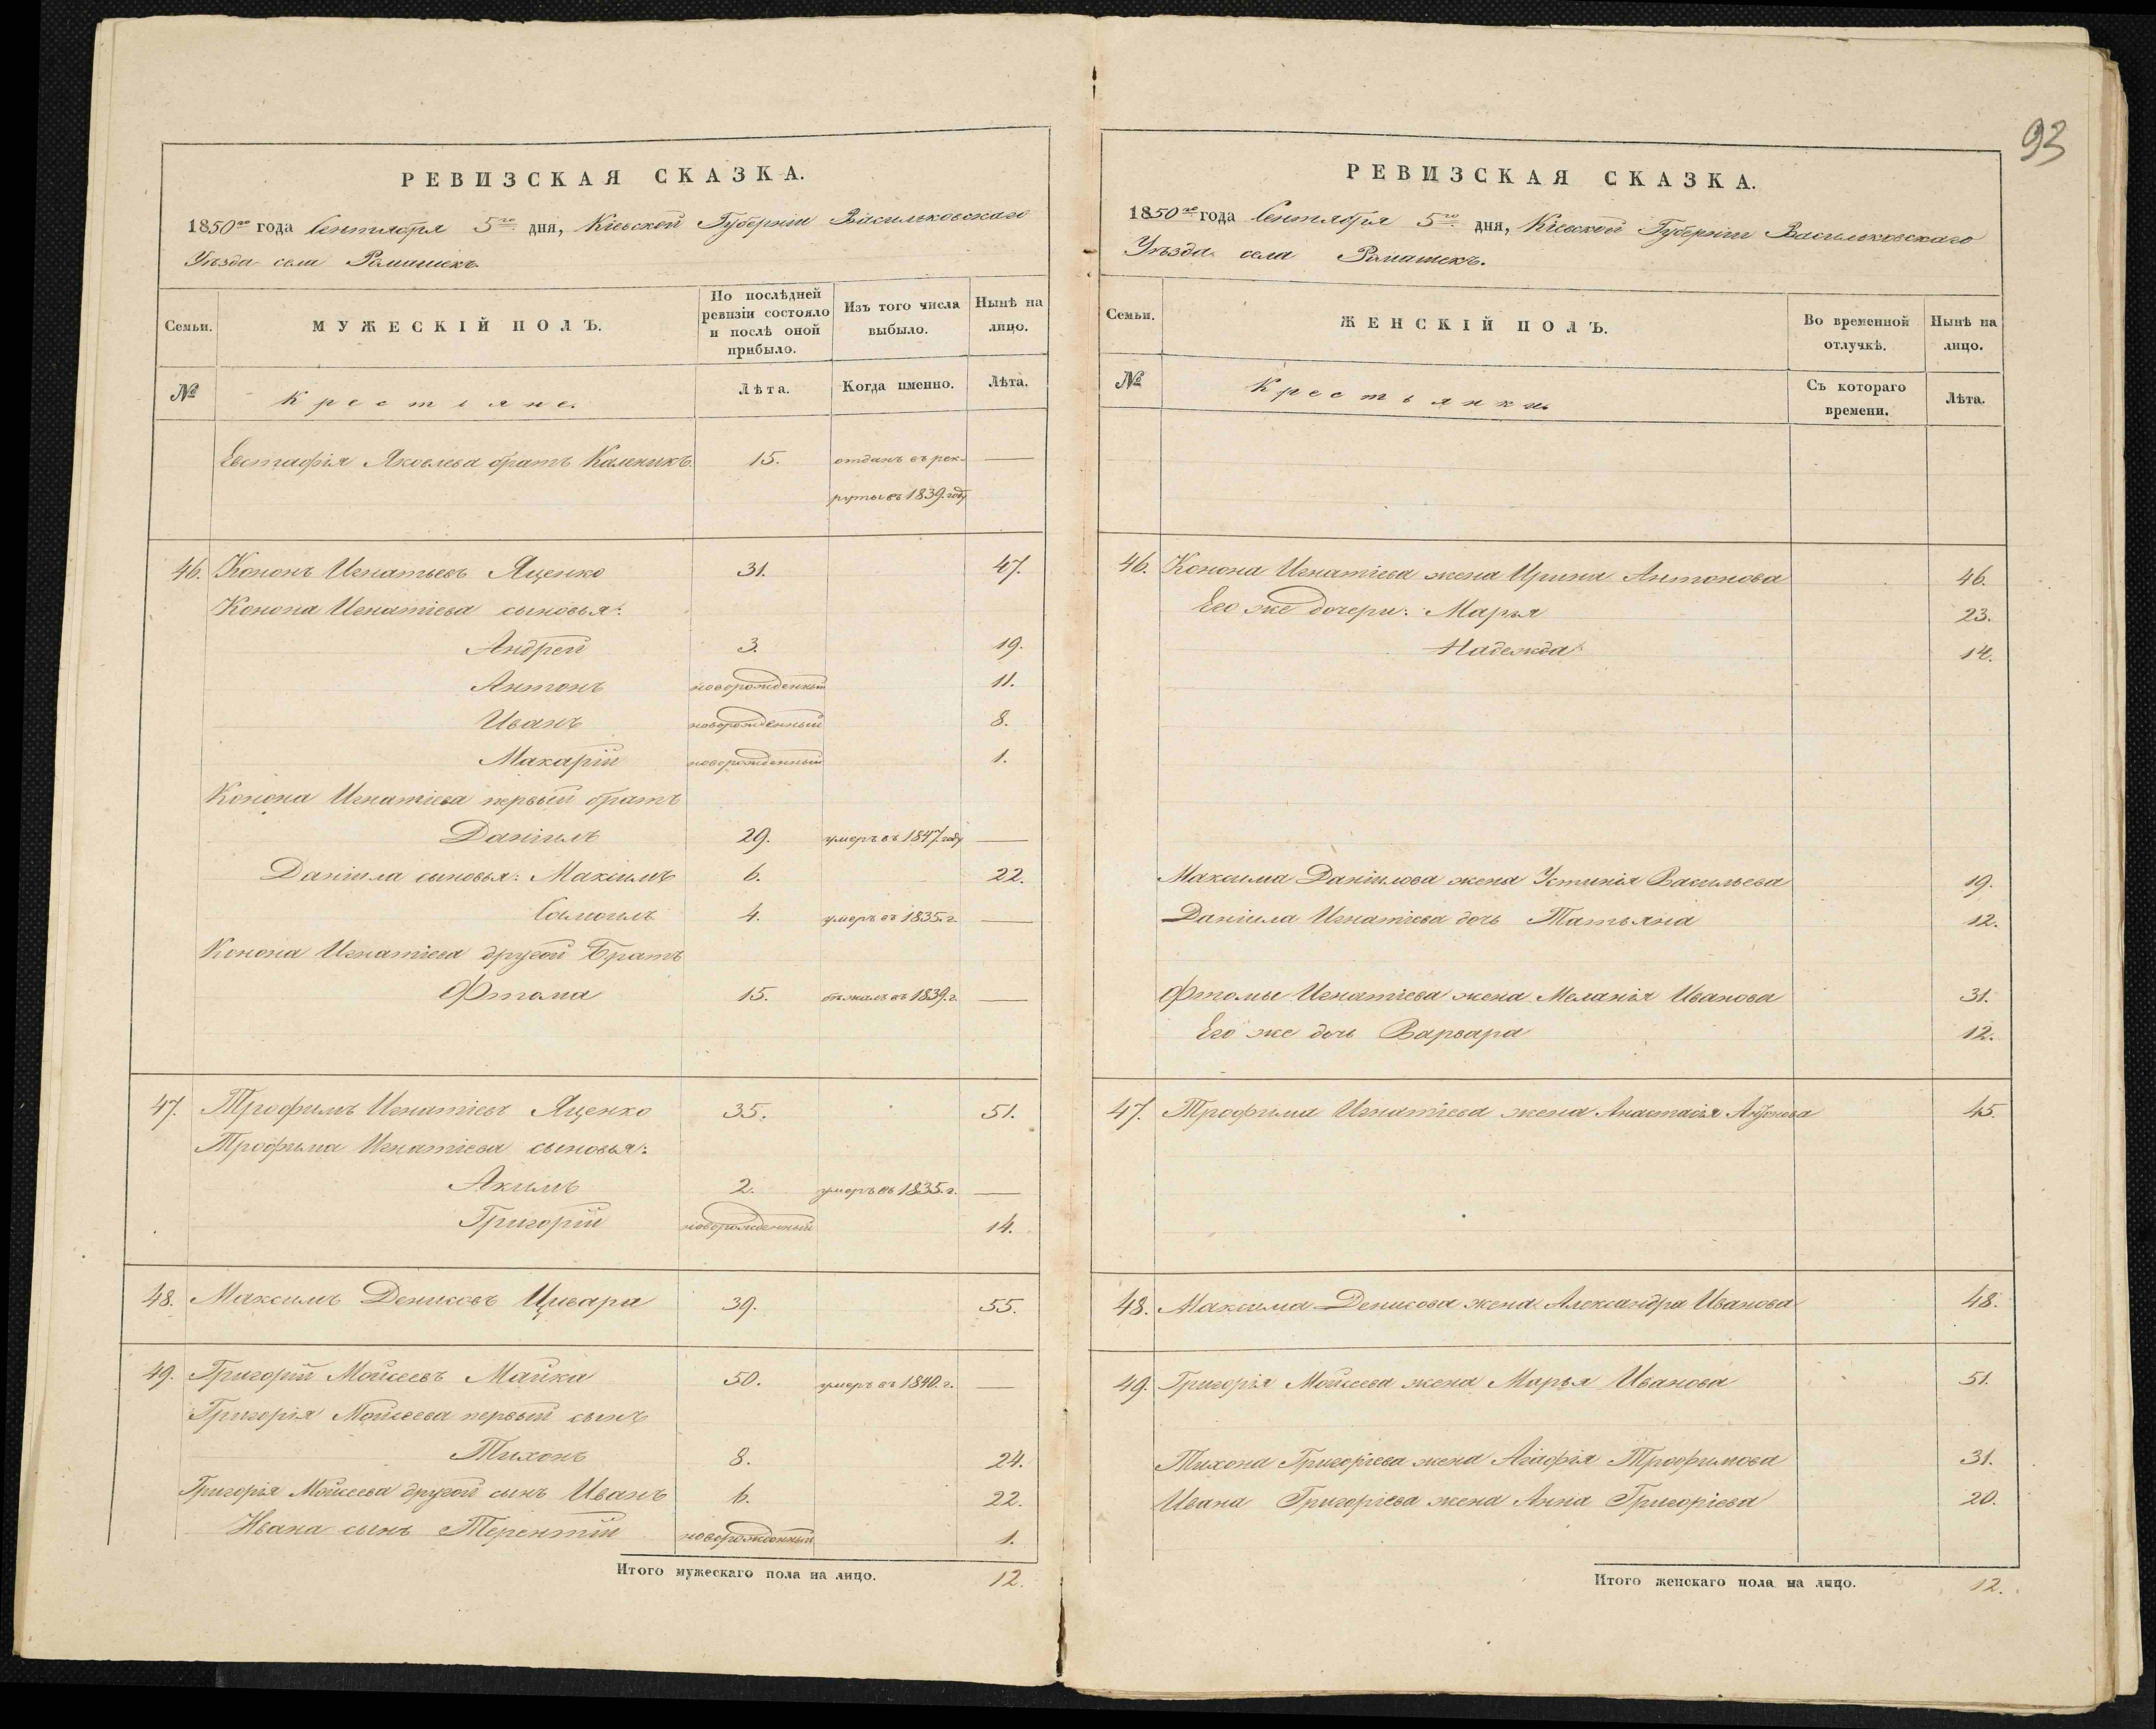 93
РЕВИЗСКАЯ СКАЗКА.
1850го года Сентября 5го дня, Кіевской Губерніи Васильковскаго
Уѣзда села Ромашекъ.
Семьи.
МУЖЕСКІЙ ПОЛЪ.
По послѣдней ревизіи состояло и послѣ оной прибыло.
Изъ того числа выбыло.
Нынѣ на лицо.
№
Крестьяне.
Лѣта.
Когда именно.
Лѣта.
Евстафія Яковлева братъ Каленикъ. 15. отданъ въ рек- —
руты въ 1839. году
46. Кононъ Игнатьевъ Яценко 31. 47.
Конона Игнатіева сыновья:
Андрей 3. 19.
Антонъ новорожденный 11.
Иванъ новорожденный 8.
Макарій новорожденный 1.
Конона Игнатіева первый братъ
Даніилъ 29. умеръ въ 1847. году —
Даніила сыновья: Максимъ 6. 22.
Самоилъ 4. умеръ въ 1835. г. —
Конона Игнатіева другой Братъ
Фтома 15. бѣжалъ въ 1839. г. —
47. Трофимъ Игнатіевъ Яценко 35. 51.
Трофима Игнатіева сыновья:
Акимъ 2. умеръ въ 1835. г. —
Григорій новорожденный 14.
48. Максимъ Денисовъ Цивара 39. 55.
49. Григорій Мойсеевъ Майка 50. умеръ въ 1840. г. —
Григорія Мойсеева первый сынъ
Тихонъ 8. 24.
Григорія Мойсеева другой сынъ Иванъ 6. 22.
Ивана сынъ Терентій новорожденный 1.
Итого мужескаго пола на лицо. 12.
РЕВИЗСКАЯ СКАЗКА.
1850го года Сентября 5го дня, Кіевской Губерніи Васильковскаго
Уѣзда села Ромашекъ.
Семьи.
ЖЕНСКІЙ ПОЛЪ.
Во временной отлучкѣ.
Нынѣ на лицо.
№
Крестьянки
Съ котораго времени.
Лѣта.
46. Конона Игнатіева жена Ирина Антонова 46.
Его же дочери: Марья 23.
Надежда 14.
Максима Даніилова жена Устинія Васильева 19.
Даніила Игнатіева дочь Татьяна 12.
Фтомы Игнатіева жена Меланія Иванова 31.
Его же дочь Варвара 12.
47. Трофима Игнатіева жена Анастасія 45.
48. Максима Денисова жена Александра Иванова 48.
49. Григорія Мойсеева жена Марья Иванова 51.
Тихона Григоріева жена Агафія Трофимова 31.
Ивана Григоріева жена Анна Григоріева 20.
Итого женскаго пола на лицо. 12.